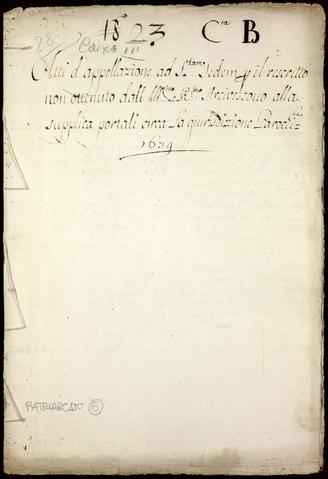 No 23 Ca B
28
Caixo III
Atti d'appellazione ad Stam Sedem p il rescritto
non ottenuto dall' Illmo e Rmo Arcivescovo alla
supplica portali circa la giurisdizione Parocle
1679
PATRIARCATO 6